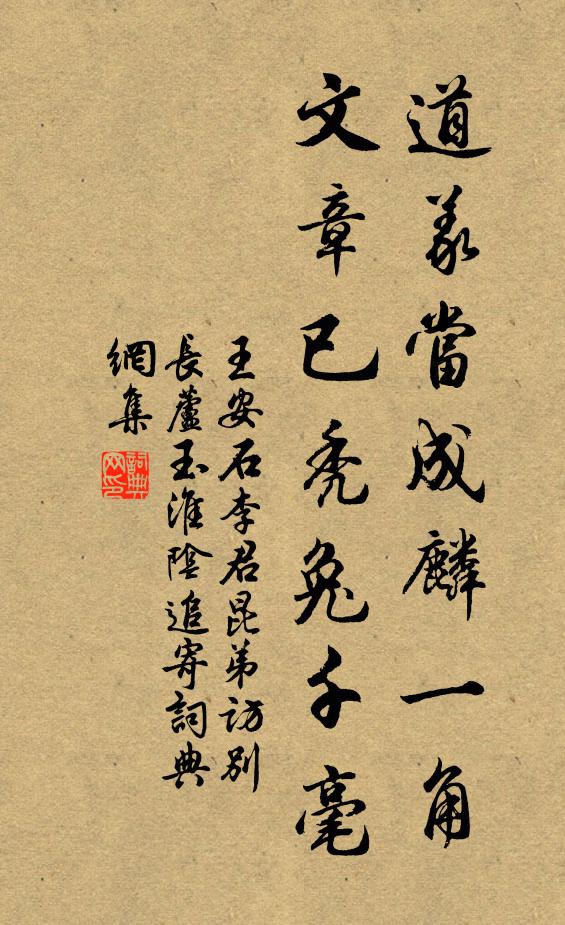 道義當成麟一角
文章已秃兔千毫
王安石李君昆弟訪別
長蘆玉淮陰追寄詞典
網集
詞典網印